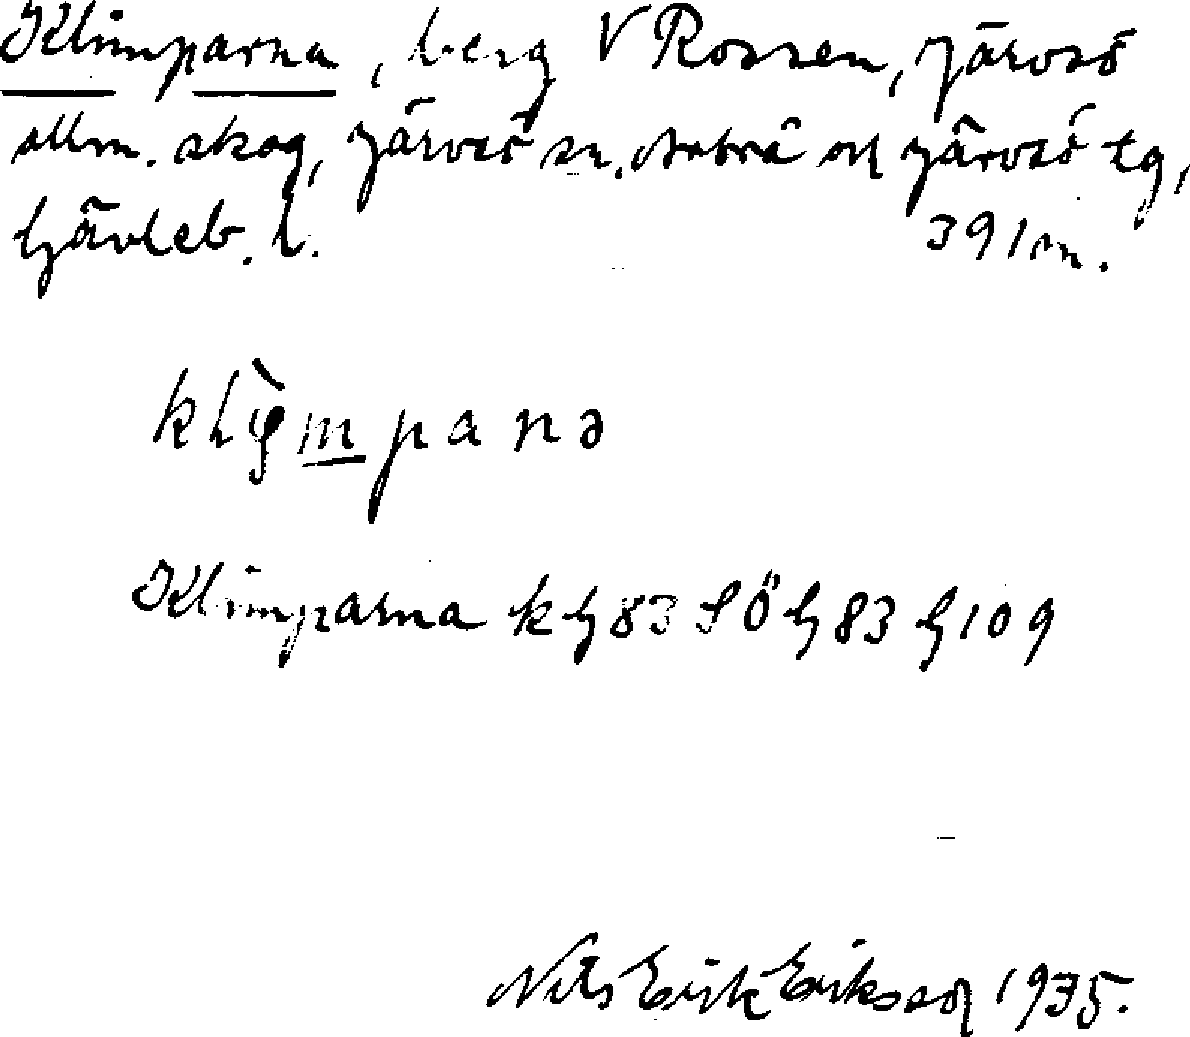 Klimparna, berg V Rossen, Järvsö
allm. skog, Järvsö sn. Arbrå och Järvsö tg,
Gävleb. l. 391 m.
Klimparna k G83 SÖ G83 G109
Nils Erik Eriksson 1935.